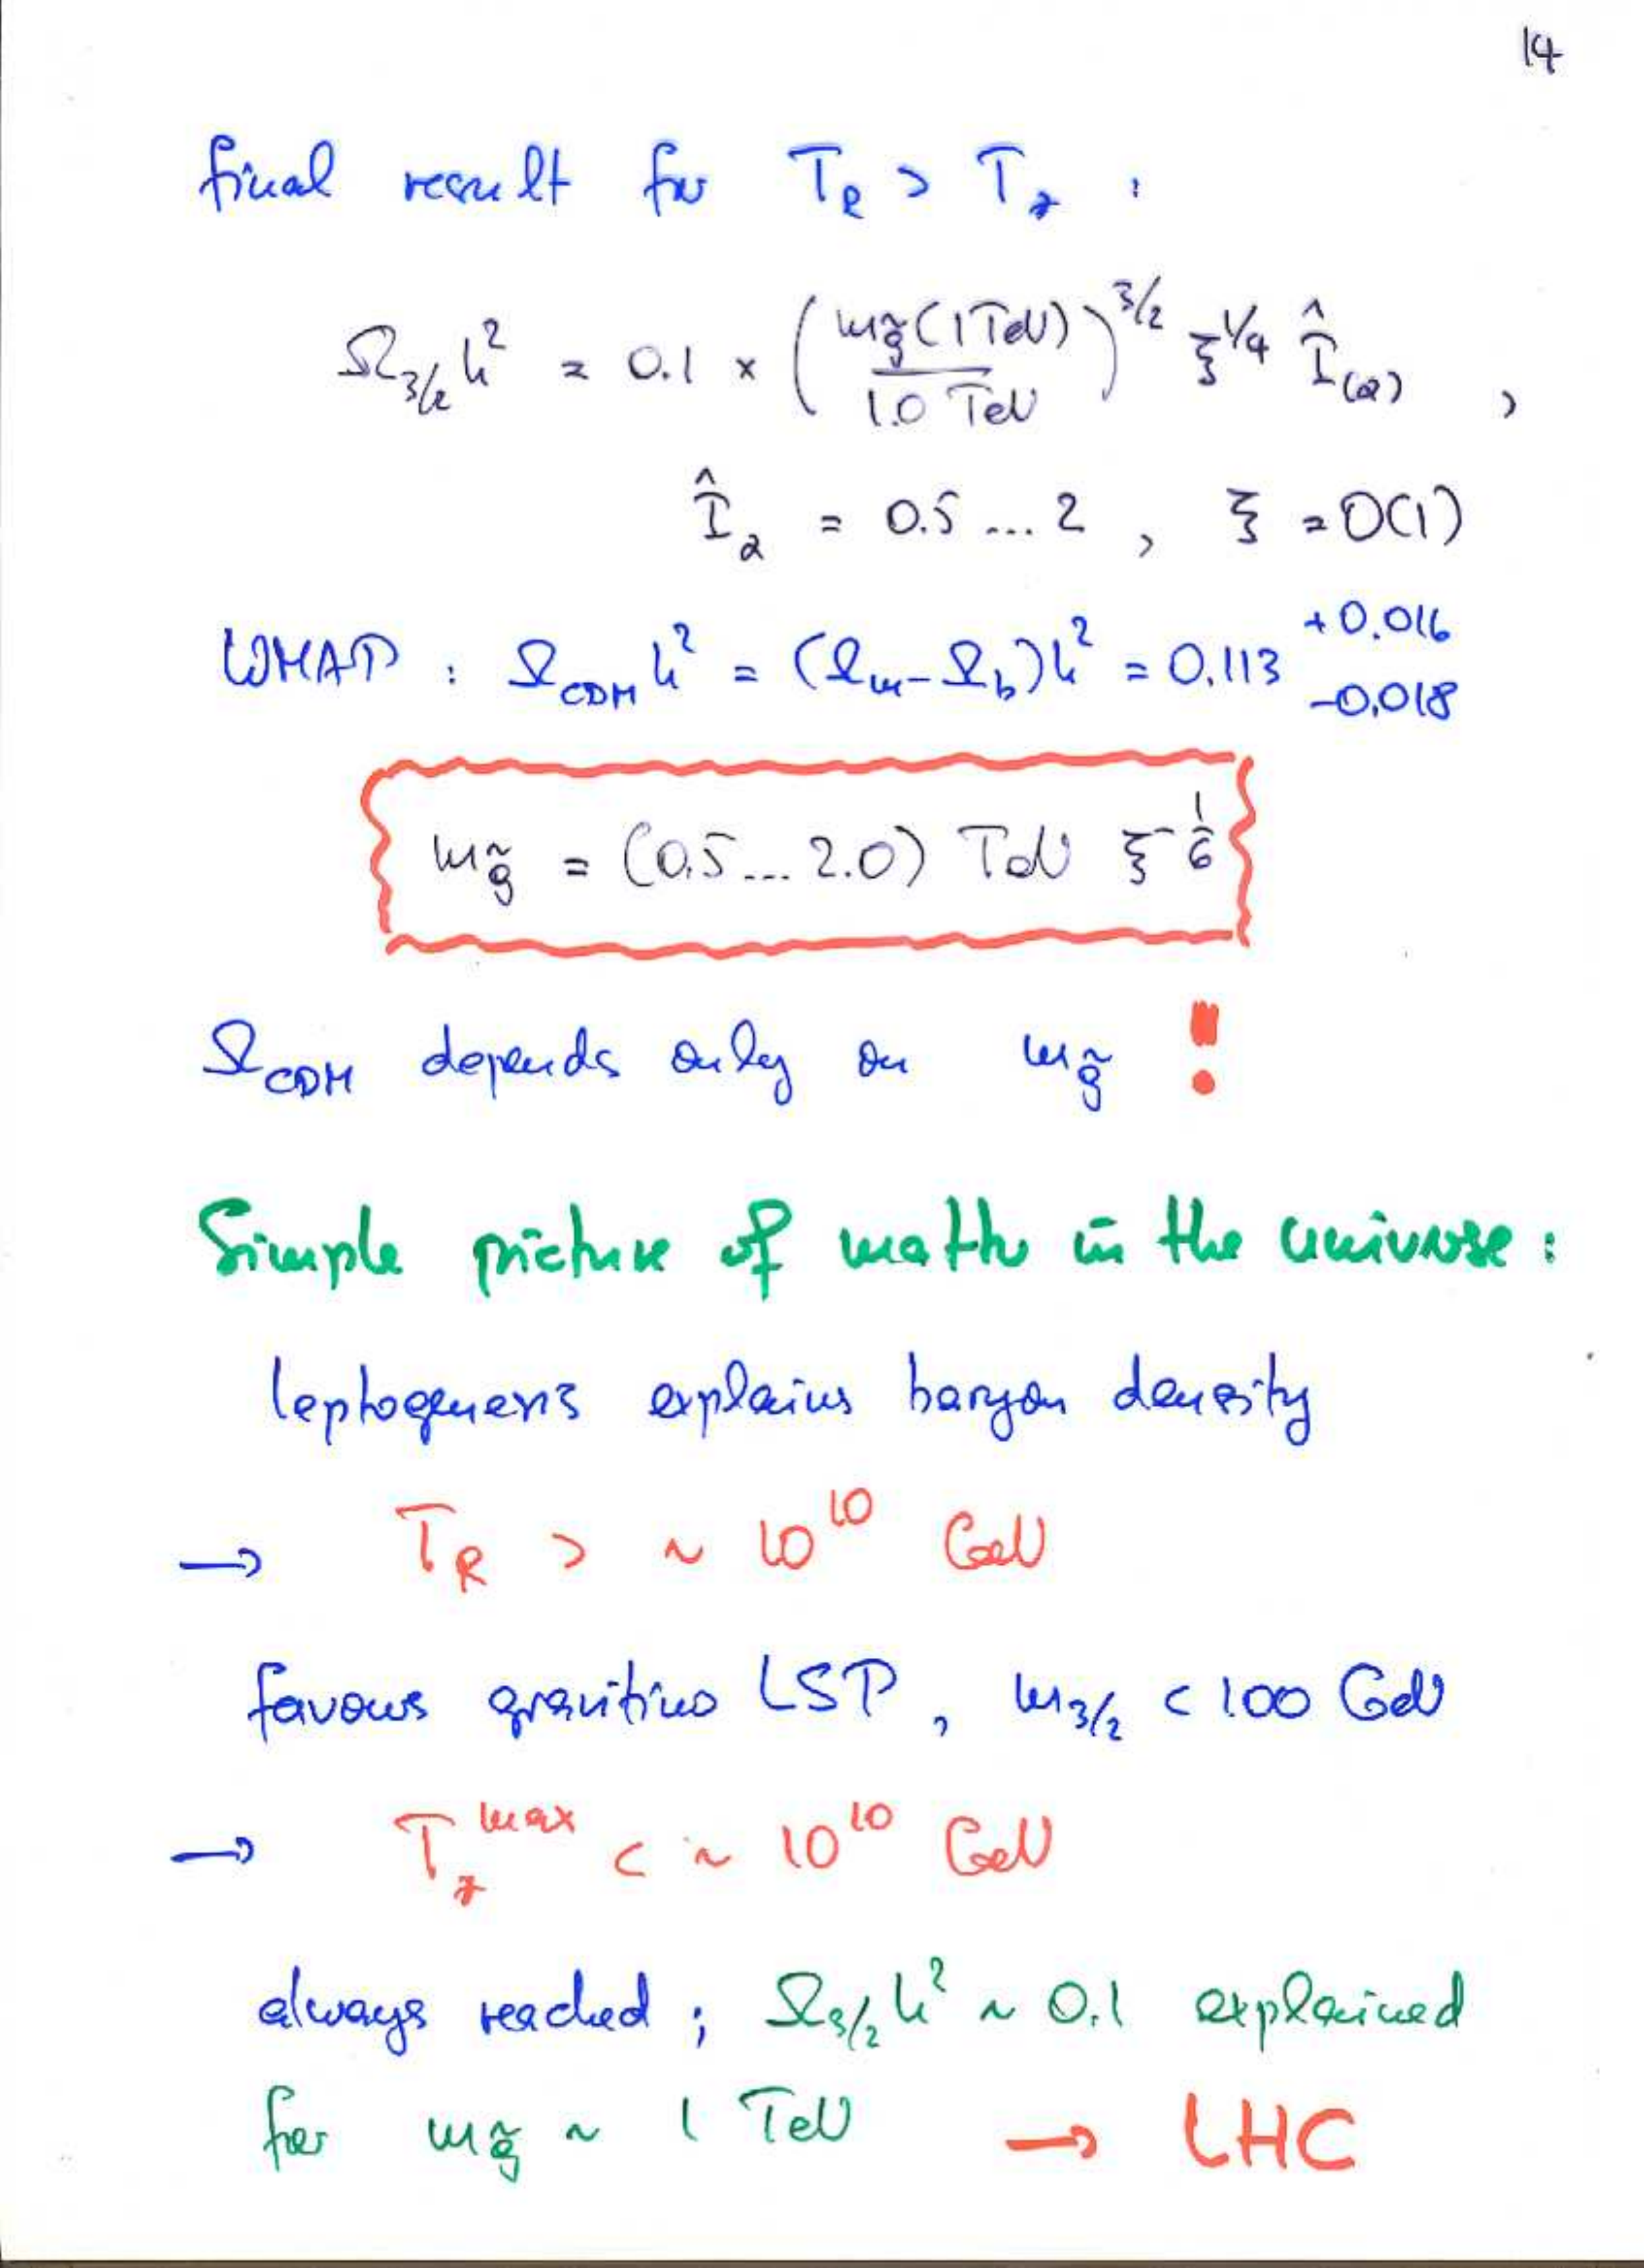 14
final result for T_R > T_* :
Ω_{3/2} h² = 0.1 × ( m_g̃(1TeV) / 1.0 TeV )^{3/2} ξ^{1/4} Î_(α) ,
Î_α = 0.5 ... 2 , ξ = O(1)
WMAP : Ω_CDM h² = (Ω_m - Ω_b)h² = 0.113 +0.016 -0.018
m_g̃ = (0.5 ... 2.0) TeV ξ^{-1/6}
Ω_CDM depends only on m_g̃ !
Simple picture of matter in the universe :
leptogenesis explains baryon density
→ T_R > ~ 10^{10} GeV
favours gravitino LSP , m_{3/2} < 100 GeV
→ T_*^{max} < ~ 10^{10} GeV
always reached ; Ω_{3/2} h² ~ 0.1 explained
for m_g̃ ~ 1 TeV → LHC